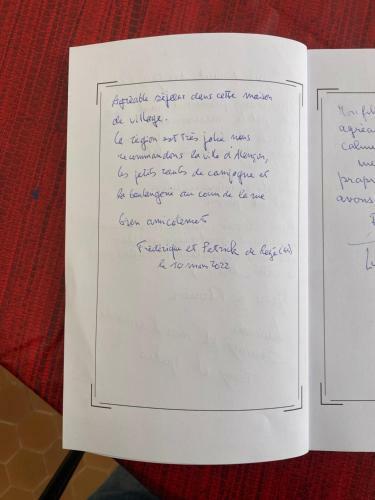 Agréable séjour dans cette maison
de village.
La région est très jolie nous
recommandons la ville d'Alençon,
les petits routes de campagne et
la boulangerie au coin de la rue
bien amicalement
Frédérique et Patrick de
le 10 mars 2022
agréa
calme
me
propr
avons